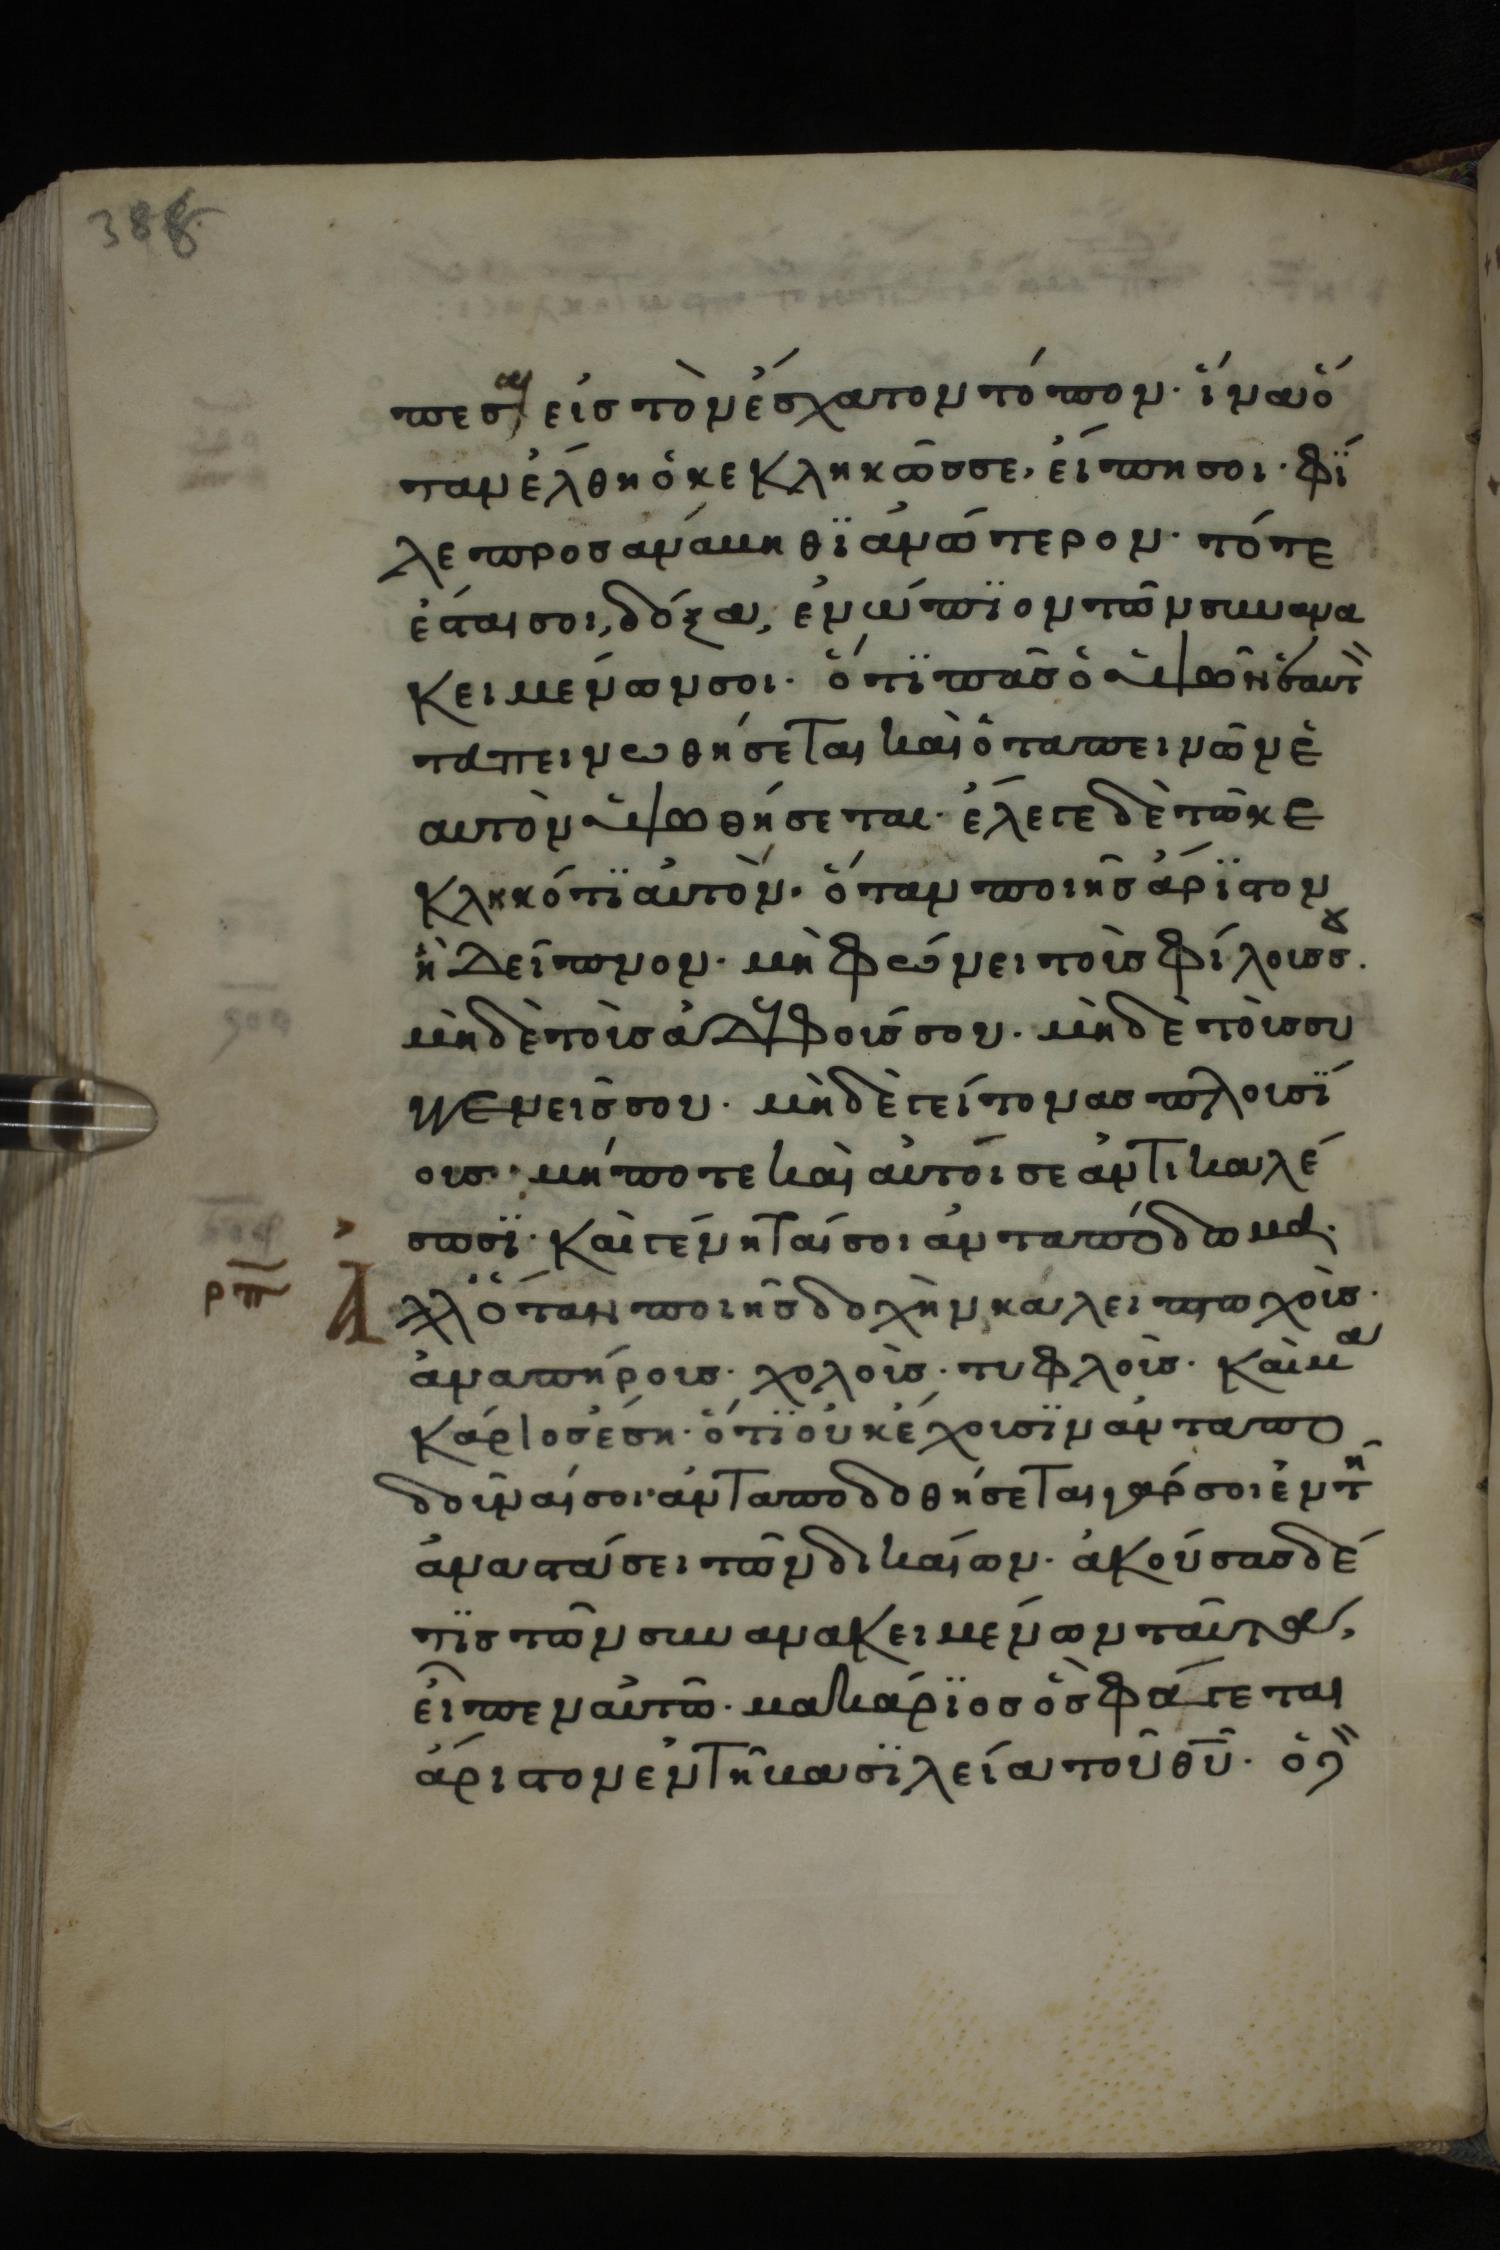 388
πεσαι εἰς τὸν ἔσχατον τόπον· ἵνα ὅ
ταν ἔλθη ὁ κεκληκῶς σε, εἴπη σοι· φί
λε προσανάμηθϊ ἀνώτερον· τότε
ἔσται σοι, δόξα, ἐνώπϊον τῶν συνανα
κειμένων σοι· ὅτϊ πᾶς ὁ ὑψῶν ἑαυτ
ταπεινωθήσεται καὶ ὁ ταπεινῶν ἑ
αυτὸν ὑψωθήσεται· ἔλεγε δὲ τῶ κε
κληκότϊ αὐτὸν· ὅταν ποιῆς ἄρϊστον
ἢ δεῖπνον· μὴ φώνει τοὺς φίλους σου·
μὴδὲ τοὺς ἀδελφούς σου· μὴδὲ τοὺς συ
γγενεῖς σου· μὴδὲ γείτονας πλουσί
ους· μήποτε καὶ αὐτοί σε ἀντικαλέ
σωσϊ· καὶ γένηταί σοι ἀνταπόδομα·
ρπ Ἀλλ' ὅταν ποιῆς δοχὴν κάλει πτωχοὺς·
ἀναπήρους· χολοὺς· τυφλοὺς· καὶ μα
κάριος ἔση· ὅτϊ οὐκ ἔχουσϊν ἀνταπο
δοῦναί σοι· ἀνταποδοθήσεται γάρ σοι ἐν τῆ
ἀναστάσει τῶν δικαίων· ἀκούσας δέ
τϊς τῶν συνανακειμένων ταῦτα,
εἶπεν αὐτῶ· μακάρϊος ὃς φάγεται
ἄριστον ἐν τῆ βασϊλεία τοῦ θυ· ὁ δ